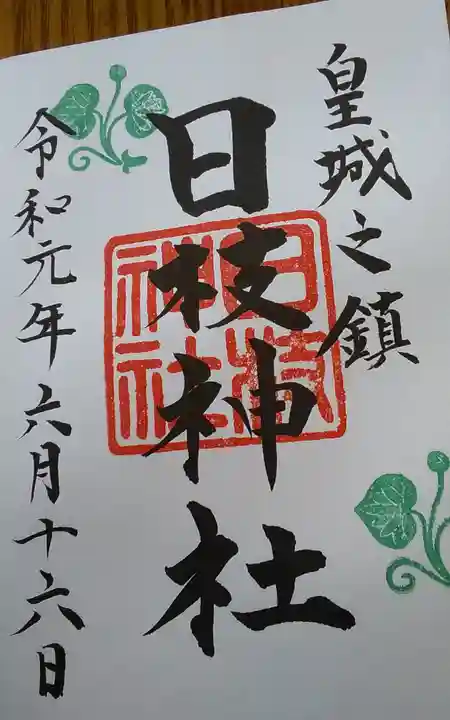 皇城之鎮
日枝神社
日枝神社
令和元年六月十六日